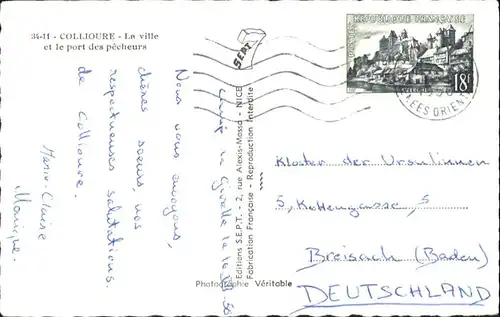 34-11 - COLLIOURE - La ville
et le port des pêcheurs
SEPT
RÉPUBLIQUE FRANÇAISE
18F
ÉES ORIENT
Nous vous envoyons,
chères sœurs, nos
respectueuses salutations
de Collioure.
Marie-Claire
Monique.
Editions S.E.P.T. - 2, rue Alexis-Mossa - NICE
Fabrication Française - Reproduction Interdite
Photographie Véritable
Kloster der Ursulinnen
5, Kettengasse, 5
Breisach (Baden)
DEUTSCHLAND